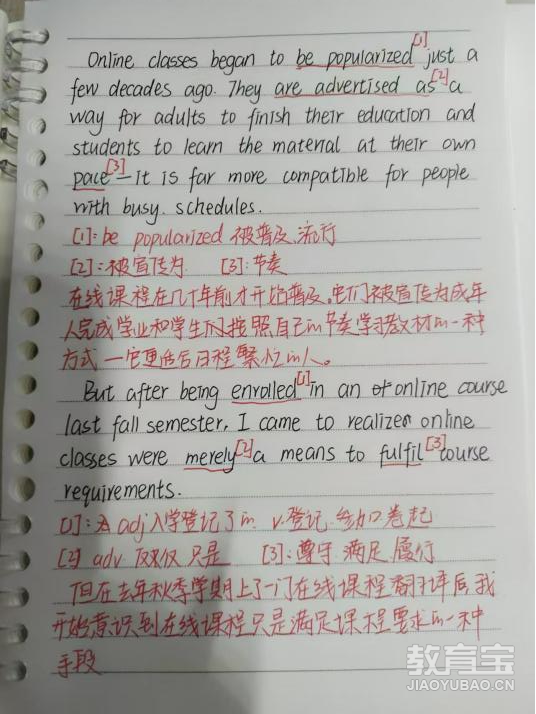 Online classes began to be popularized[1] just a
few decades ago. They are advertised as[2] a
way for adults to finish their education and
students to learn the material at their own
pace[3] — it is far more compatible for people
with busy. schedules.
[1]: be popularized 被普及,流行
[2]: 被宣传为 [3]: 节奏
在线课程在几十年前才开始普及,它们被宣传为成年
人完成学业和学生们按照自己的节奏学习教材的一种
方式 一它更适合日程繁忙的人。
But after being enrolled[1] in an online course
last fall semester, I came to realizen online
classes were merely[2] a means to fulfil[3] course
requirements.
[1]: adj 入学登记了的 v. 登记 参加 卷起
[2] adv 仅仅 只是 [3]: 遵守 满足 履行
但在去年秋季学期上了一门在线课程 后,我
开始意识到在线课程只是满足课程要求的一种
手段
教育宝
JIAOYUBAO.CN